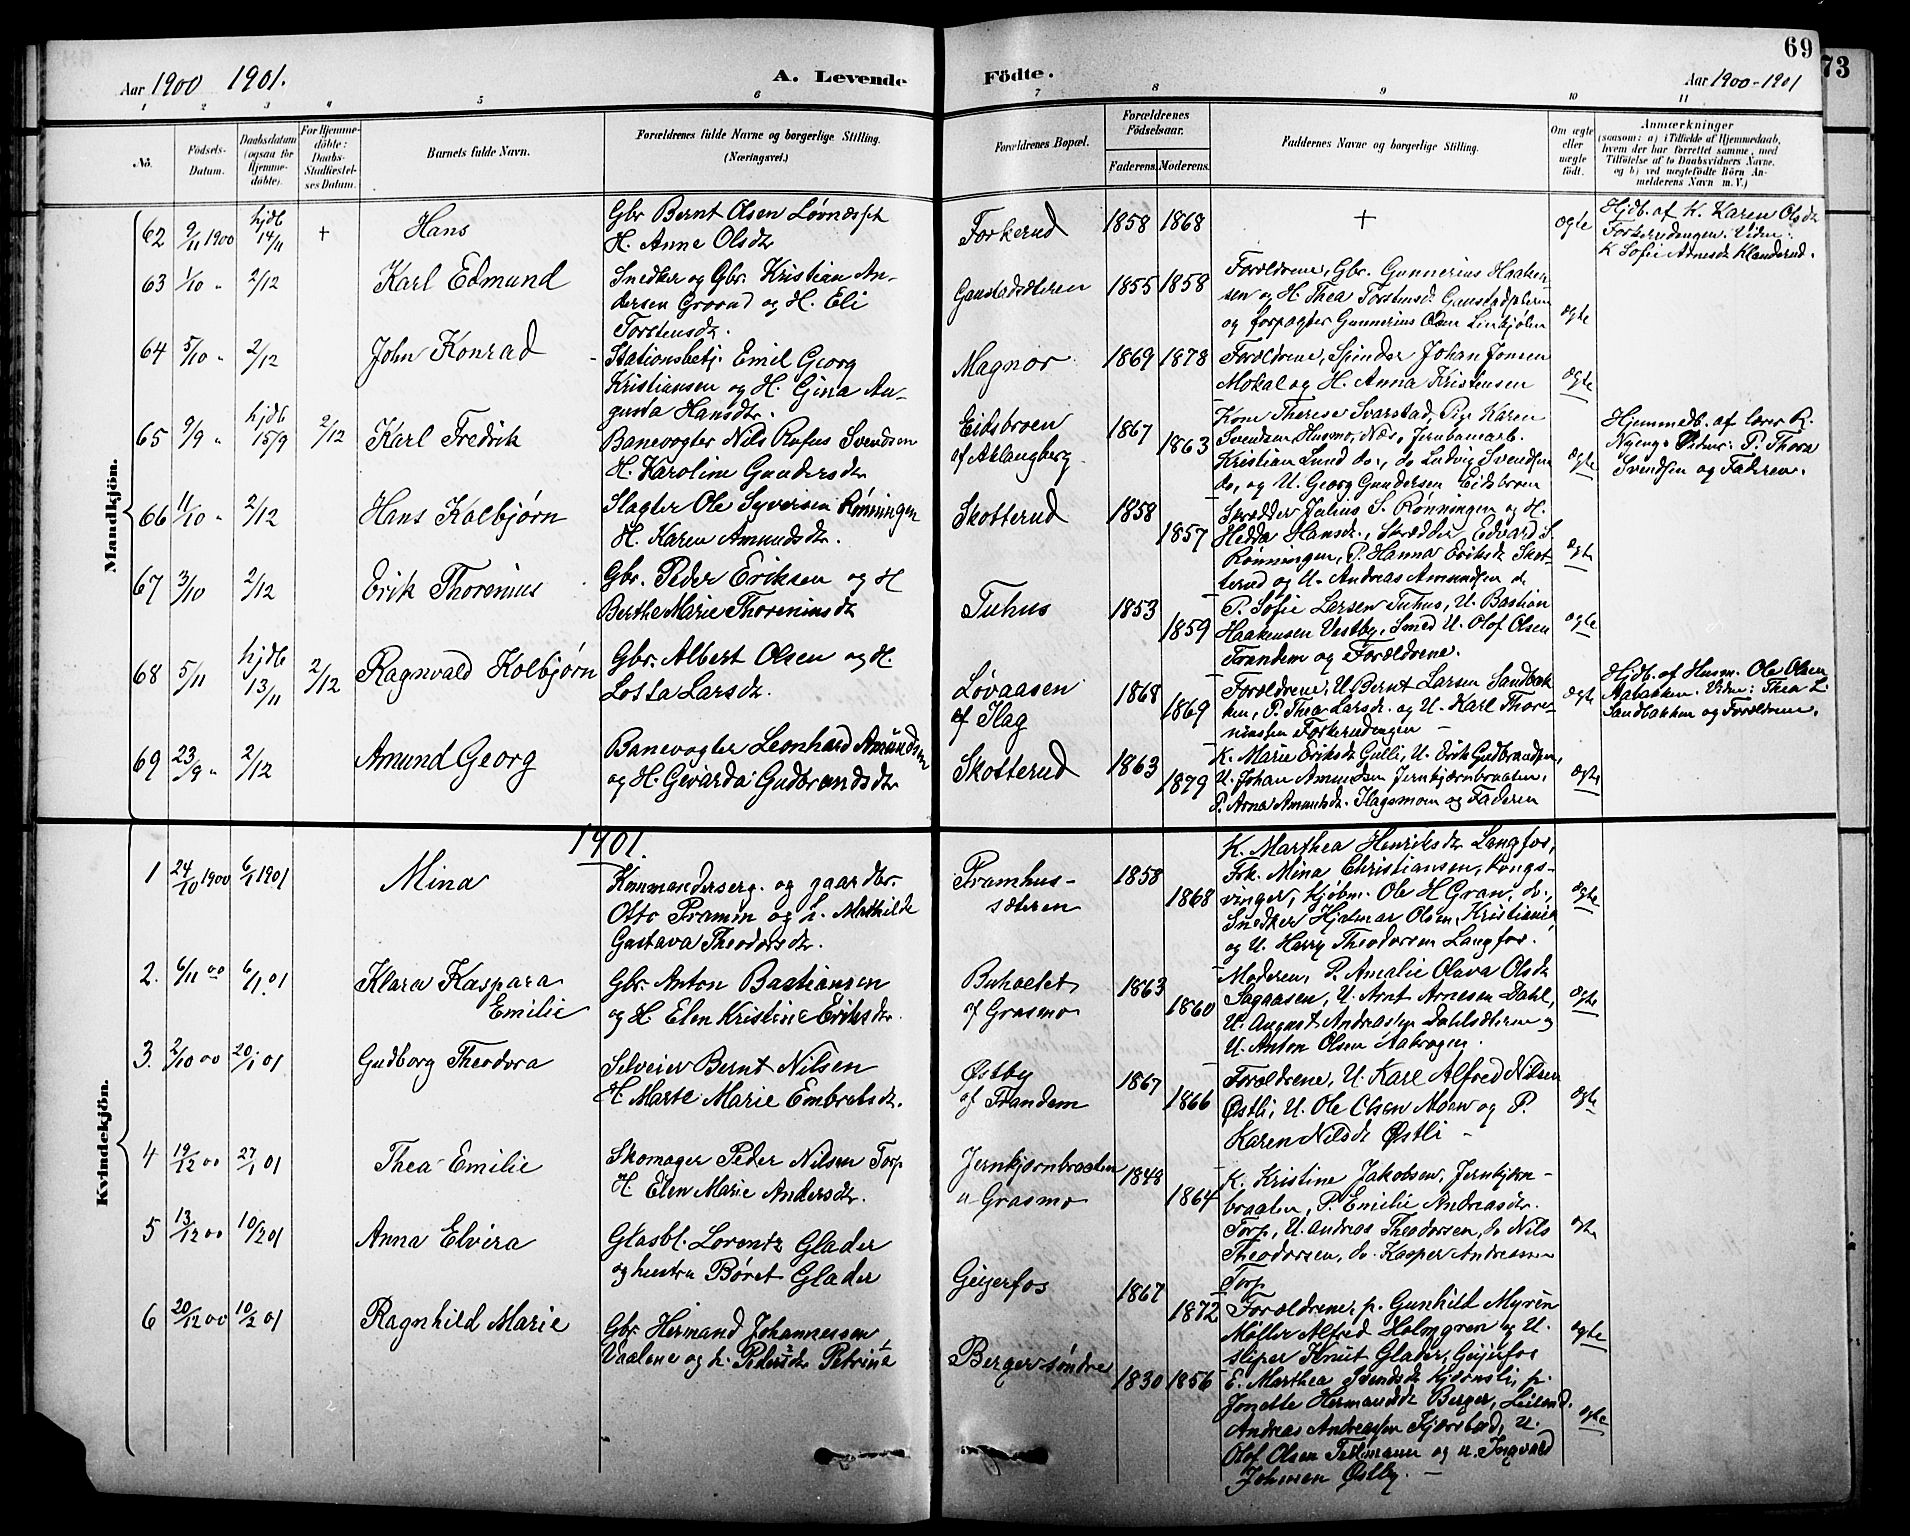 69
73
Aar 1900 1901.
A. Levende
Födte.
Aar 1900-1901
1 2 3 4 5 6 7 8 9 10 11
No.
Födsels-
Datum.
Daabsdatum
(ogsaa för
Hjemme-
döbte).
For Hjemme-
döbte:
Daabs-
Stadfæstel-
ses Datum.
Barnets fulde Navn.
Forældrenes fulde Navne og borgerlige Stilling.
(Næringsvei.)
Forældrenes Bopæl.
Forældrenes
Födselsaar.
Faderens. Moderens.
Faddernes Navne og borgerlige Stilling.
Om ægte
eller
uægte
födt.
Anmærkninger
(saasom: a) i Tilfælde af Hjemmedaab,
hvem der har forrettet samme, med
Tilföielse af to Daabsvidners Navne,
og b) ved uægtefödte Börn An-
melderens Navn m. V.)
Mandkjön.
62 9/11 1900 hjdb 14/11 + Hans
Gbr Bernt Olsen Løvnæspt
H. Anne Olsdtr
Forkerud 1858 1868 + ægte
Hjdb. af K. Karen Olsdtr
Forkerudengen. Vidn:
K Sofie Arnesdtr Klanderud.
63 1/10 " 2/12 Karl Edmund
Snedker og Gbr. Kristian An-
dersen Grorud og H. Eli
Torstensdtr.
Gaustadsæteren 1855 1858
Forældrene, Gbr. Gunnerius Haaken-
sen og H. Thea Torstensd. Gaustadsæteren
og forpagter Gunnerius Olsen Linkjølen
ægte
64 5/10 " 2/12 John Konrad
Stationsbetj. Emil Georg
Kristiansen og H. Gina Au-
gusta Hansdtr.
Magnor 1869 1878
Forældrene, Spinder Johan Jonsen
Mokal og H. Anna Kristensen
ægte
65 9/9 " hjdb 15/9 2/12 Karl Fredrik
Banevogter Nils Rufus Svendsen
H. Karoline Gundersdtr
Eidsbroen
af Aslangberg
1867 1863
Kone Therese Svarstad, Pige Karen
Svendsen Husmo, Næs, Jernbanearb.
Kristian Lund do., do Ludvig Svendsen
do, og U. Georg Gundersen Eidsbroen
ægte
Hjemmedb. af lærer R.
Nyeng. Vidner: P. Thora
Svendsen og Faderen.
66 11/10 " 2/12 Hans Kolbjørn
Slagter Ole Syversen Rønningen
H. Karen Amundsdtr.
Skotterud 1858 1857
Skrædder Julius S. Rønningen og H.
Hedda Hansdtr., Skrædder Edvard S.
Rønningen, P. Hanna Eriksdtr Skot-
terud og U. Andreas Amundsen do
ægte
67 3/10 2/12 Erik Thorenius
Gbr. Peder Eriksen og H
Berthe Marie Thoreniusdtr
Tuhus 1853 1859
P. Sofie Larsen Tuhus, U. Bastian
Haakensen Vestby, Smed U. Olof Olsen
Trandem og Forældrene.
ægte
68 5/11 hjdb 13/11 2/12 Ragnvald Kolbjørn
Gbr. Albert Olsen og H.
Lotta Larsdtr.
Løvaasen
af Ilag
1868 1869
Forældrene, U Bernt Larsen Sandbæk
ken, P. Thea Larsdtr. og U. Karl Thore-
niussen Forkerudengen
ægte
Hjdb. af Husm. Ole Olsen
Aabakken. Vidn: Thea L.
Sandbakken og Forældrene.
69 23/9 " 2/12 Amund Georg
Banevogter Leonhard Amundsen
og H. Gevarda Gudbrandsdtr
Skotterud 1863 1879
K. Marie Eriksdtr Gulli, U. Erik Gudbrandsen,
U. Johan Amundsen Jernbjørnbraaten,
P. Arna Amundsdtr. Ilagsmoen og Faderen
ægte
Kvindekjön.
1901.
1 24/10 1900 6/1 1901 Mina
Kommandersserg. og gaardbr.
Otto Pramm og h. Mathilde
Gustava Theodorsdtr.
Pramhus-
sæteren
1858 1868
K. Marthea Henriksdtr Langfos,
Frk. Mina Christiansen, Kongs-
vinger, Kjøbm. Ole H Gran, do.,
Snedker Hjalmar Olsen, Kristiania
og U. Harry Theodorsen Langfos.
ægte
2. 6/11 00 6/1 01 Klara Kaspara
Emilie
Gbr. Anton Bastiansen
og H. Elen Kristine Eriksdtr.
Buholtet
af Grasmo
1863 1860
Moderen, P. Amalie Olava Olsdtr
Sagaasen, U. Arnt Arnesen Dahl,
U. August Andreassen Dahlsæteren og
U. Anton Olsen Aabogen.
ægte
3. 2/10 00 20/1 01 Gudborg Theodora
Selveier Bernt Nilsen
H. Marte Marie Embretsdtr.
Østby
af Trandem
1867 1866
Forældrene, U. Karl Alfred Nilsen
Østli, U. Ole Olsen Moen og P.
Karen Nilsdtr Østli
ægte
4 19/12 00 27/1 01 Thea Emilie
Skomager Peder Nilsen Torp
H. Elen Marie Andersdtr.
Jernbjørnbraaten
u Grasmo
1848 1864
K. Kristine Jakobsen, Jernbjørn-
braaten, P. Emilie Andreasdtr.
Torp, U. Andreas Theodorsen, do Nils
Theodorsen, do. Kasper Andresen
Torp
ægte
5 13/12 00 10/2 01 Anna Elvira
Glasbl. Lorentz Glader
og hustru Børet Glader
Geijerfos 1867 1872
Forældrene, p. Gunhild Myren
Møller Alfred Holmgren og U.
sliper Knut Glader, Geijerfos
ægte
6 20/12 00 10/2 01 Ragnhild Marie
Gbr. Hermand Johannessen
Vaalene og h. Pedersdtr Petrina
Berger søndre 1830 1856
E. Marthea Svendsdtr Kjernsli, p.
Jonette Hermansdtr Berger, Leilend.
Andreas Andreassen Fjærstad, U.
Olof Olsen Tellmann og U. Ingvald
Johnsen Østby.
ægte